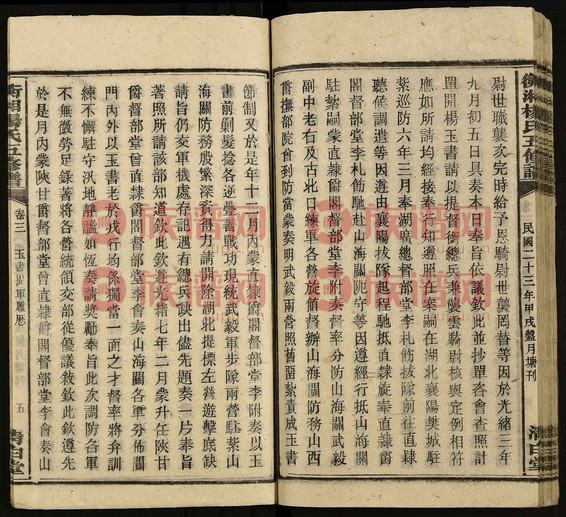 衡湘楊氏五修譜
民國二十三年甲戌蘭月塘刊
清白堂
尉世職襲次完時給予恩騎尉世襲罔替等因於光緒三年
九月初五日具奏本日奉旨依議欽此並抄單咨會查照計
單開楊玉書請以提督銜總兵兼襲雲騎尉核與定例相符
應如所請均經接奉行知遵照在案嗣在湖北襄陽樊城駐
紥巡防六年三月奉湖廣總督部堂李札飭拔隊前往直隸
聽候調遣等因遵由襄陽拔隊起程馳抵直隸旋奉直隸爵
閣部堂李札飭馳赴山海關駐守等因遵經行抵山海關
駐紥蒙直隸爵閣督部堂李附奏督率分防山海關武毅
副中老右及古北口練軍各營旋值督辦山海關防務山西
爵撫部院會到防當蒙奏明武毅兩營照舊亟紥責成玉書
節制又於是年十月內蒙直隸爵閣督部堂李附奏以玉
書前剿髮捻各逆疊著戰功現統武毅軍步隊兩營駐紮山
海關防務殷繁深資得力請開除湖北提標左營遊擊底缺
請旨仍交軍機處存記遇有總兵缺出儘先題奏一片奉旨
著照所請該部知道欽此欽遵光緒七年二月蒙升任陝甘
爵督部堂曾直隸爵閣督部堂李會奏山海關各軍分佈關
門內外以玉書老於戎行均係獨當一面之才督率將弁訓
練不懈駐守汛地靜謐如恆奏請獎勵奉旨此次調防各軍
不無微勞足錄著將各營統領交部從優議敘欽此欽遵先
於是月內蒙陝甘爵督部堂曾直隸爵閣督部堂李會奏山
衡湘楊氏五修譜
卷三
玉書出軍履歷
五
清白堂
族譜网